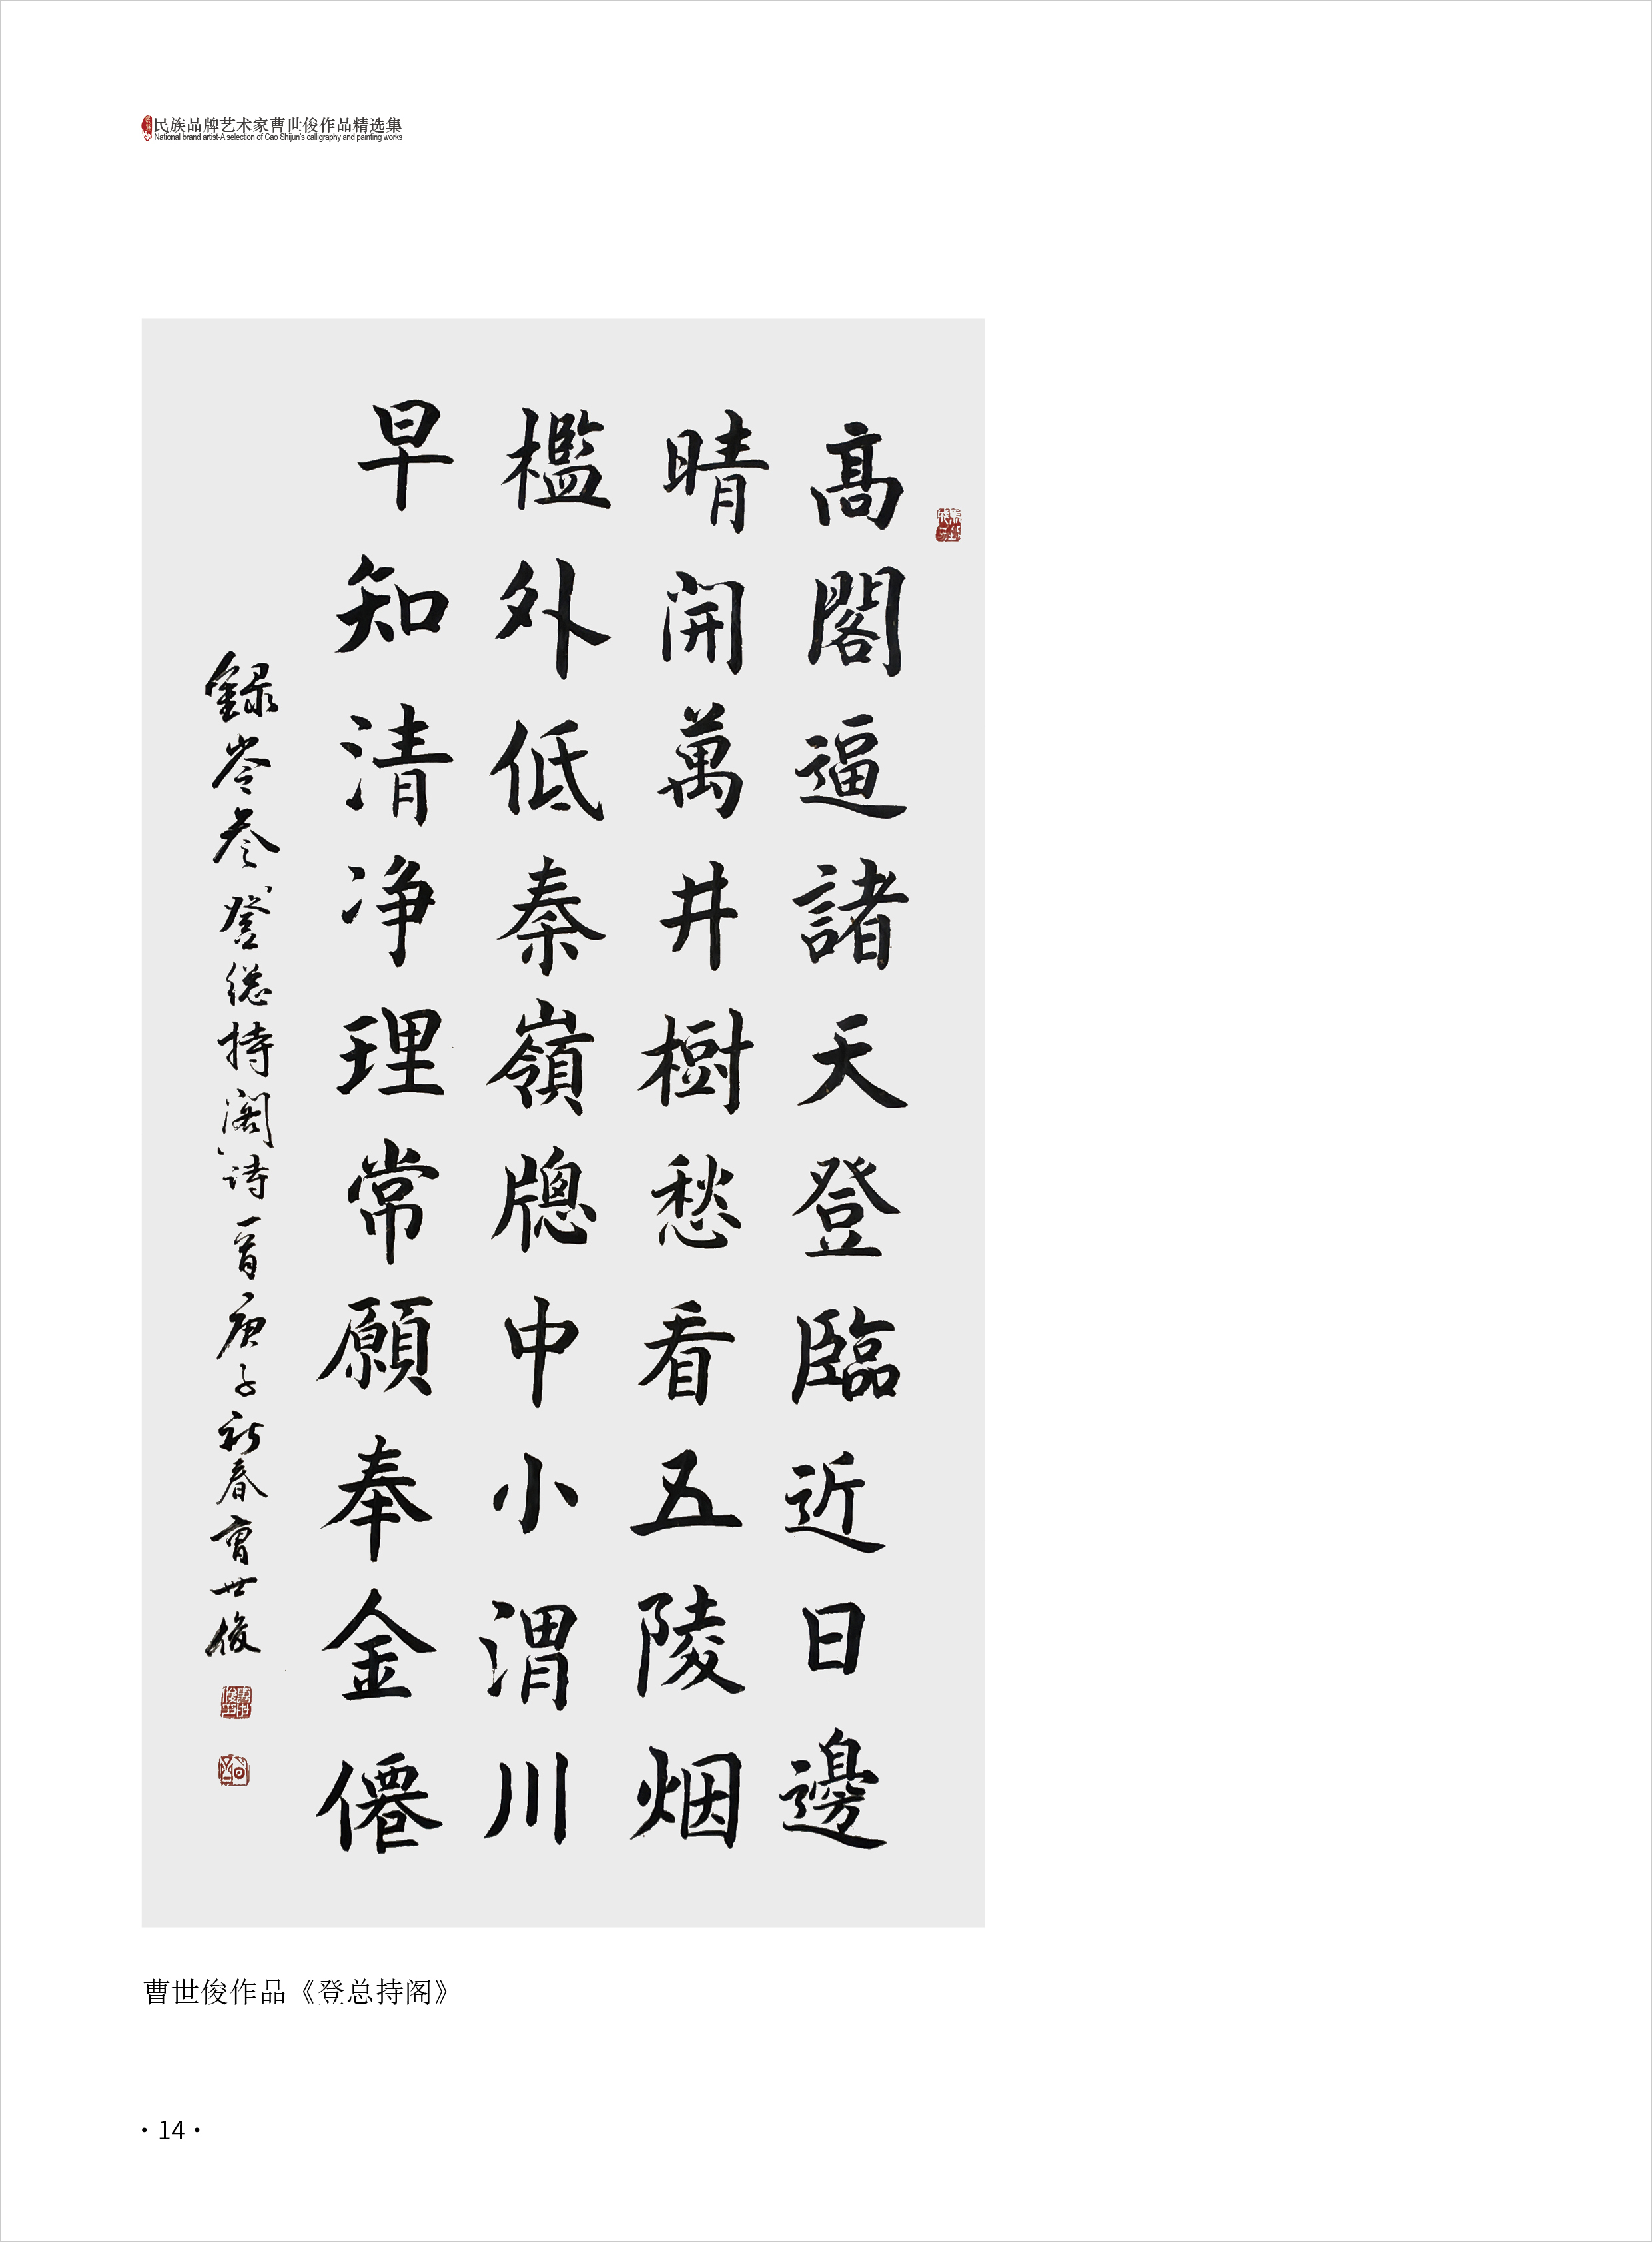 民族品牌艺术家曹世俊作品精选集
National brand artist-A selection of Cao Shijun's calligraphy and painting works
髙閣逼諸天登臨近日邊
晴開萬井樹愁看五陵烟
檻外低秦嶺牕中小渭川
早知清净理常願奉金僊
録岑參登總持阁诗一首庚子新春曹世俊
曹世俊作品《登总持阁》
·14·